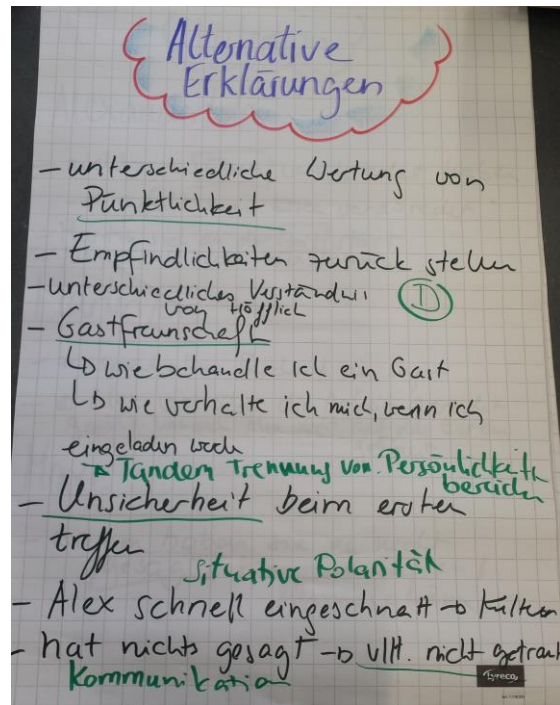 Alternative
Erklärungen
- unterschiedliche Wertung von
Pünktlichkeit
- Empfindlichkeiten zurück stellen
- unterschiedliches Verständnis D
von Höfflich
- Gastfraunschaft
↳ wie behandle ich ein Gast
↳ wie verhalte ich mich, wenn ich
eingeladen
→ Tandem Trennung von Persönlichkeits
bereichen
- Unsicherheit beim ersten
treffen
situative Polarität
- Alex schnell eingeschnatt →
- hat nichts gesagt → vllt. nicht getraut
Kommunikation